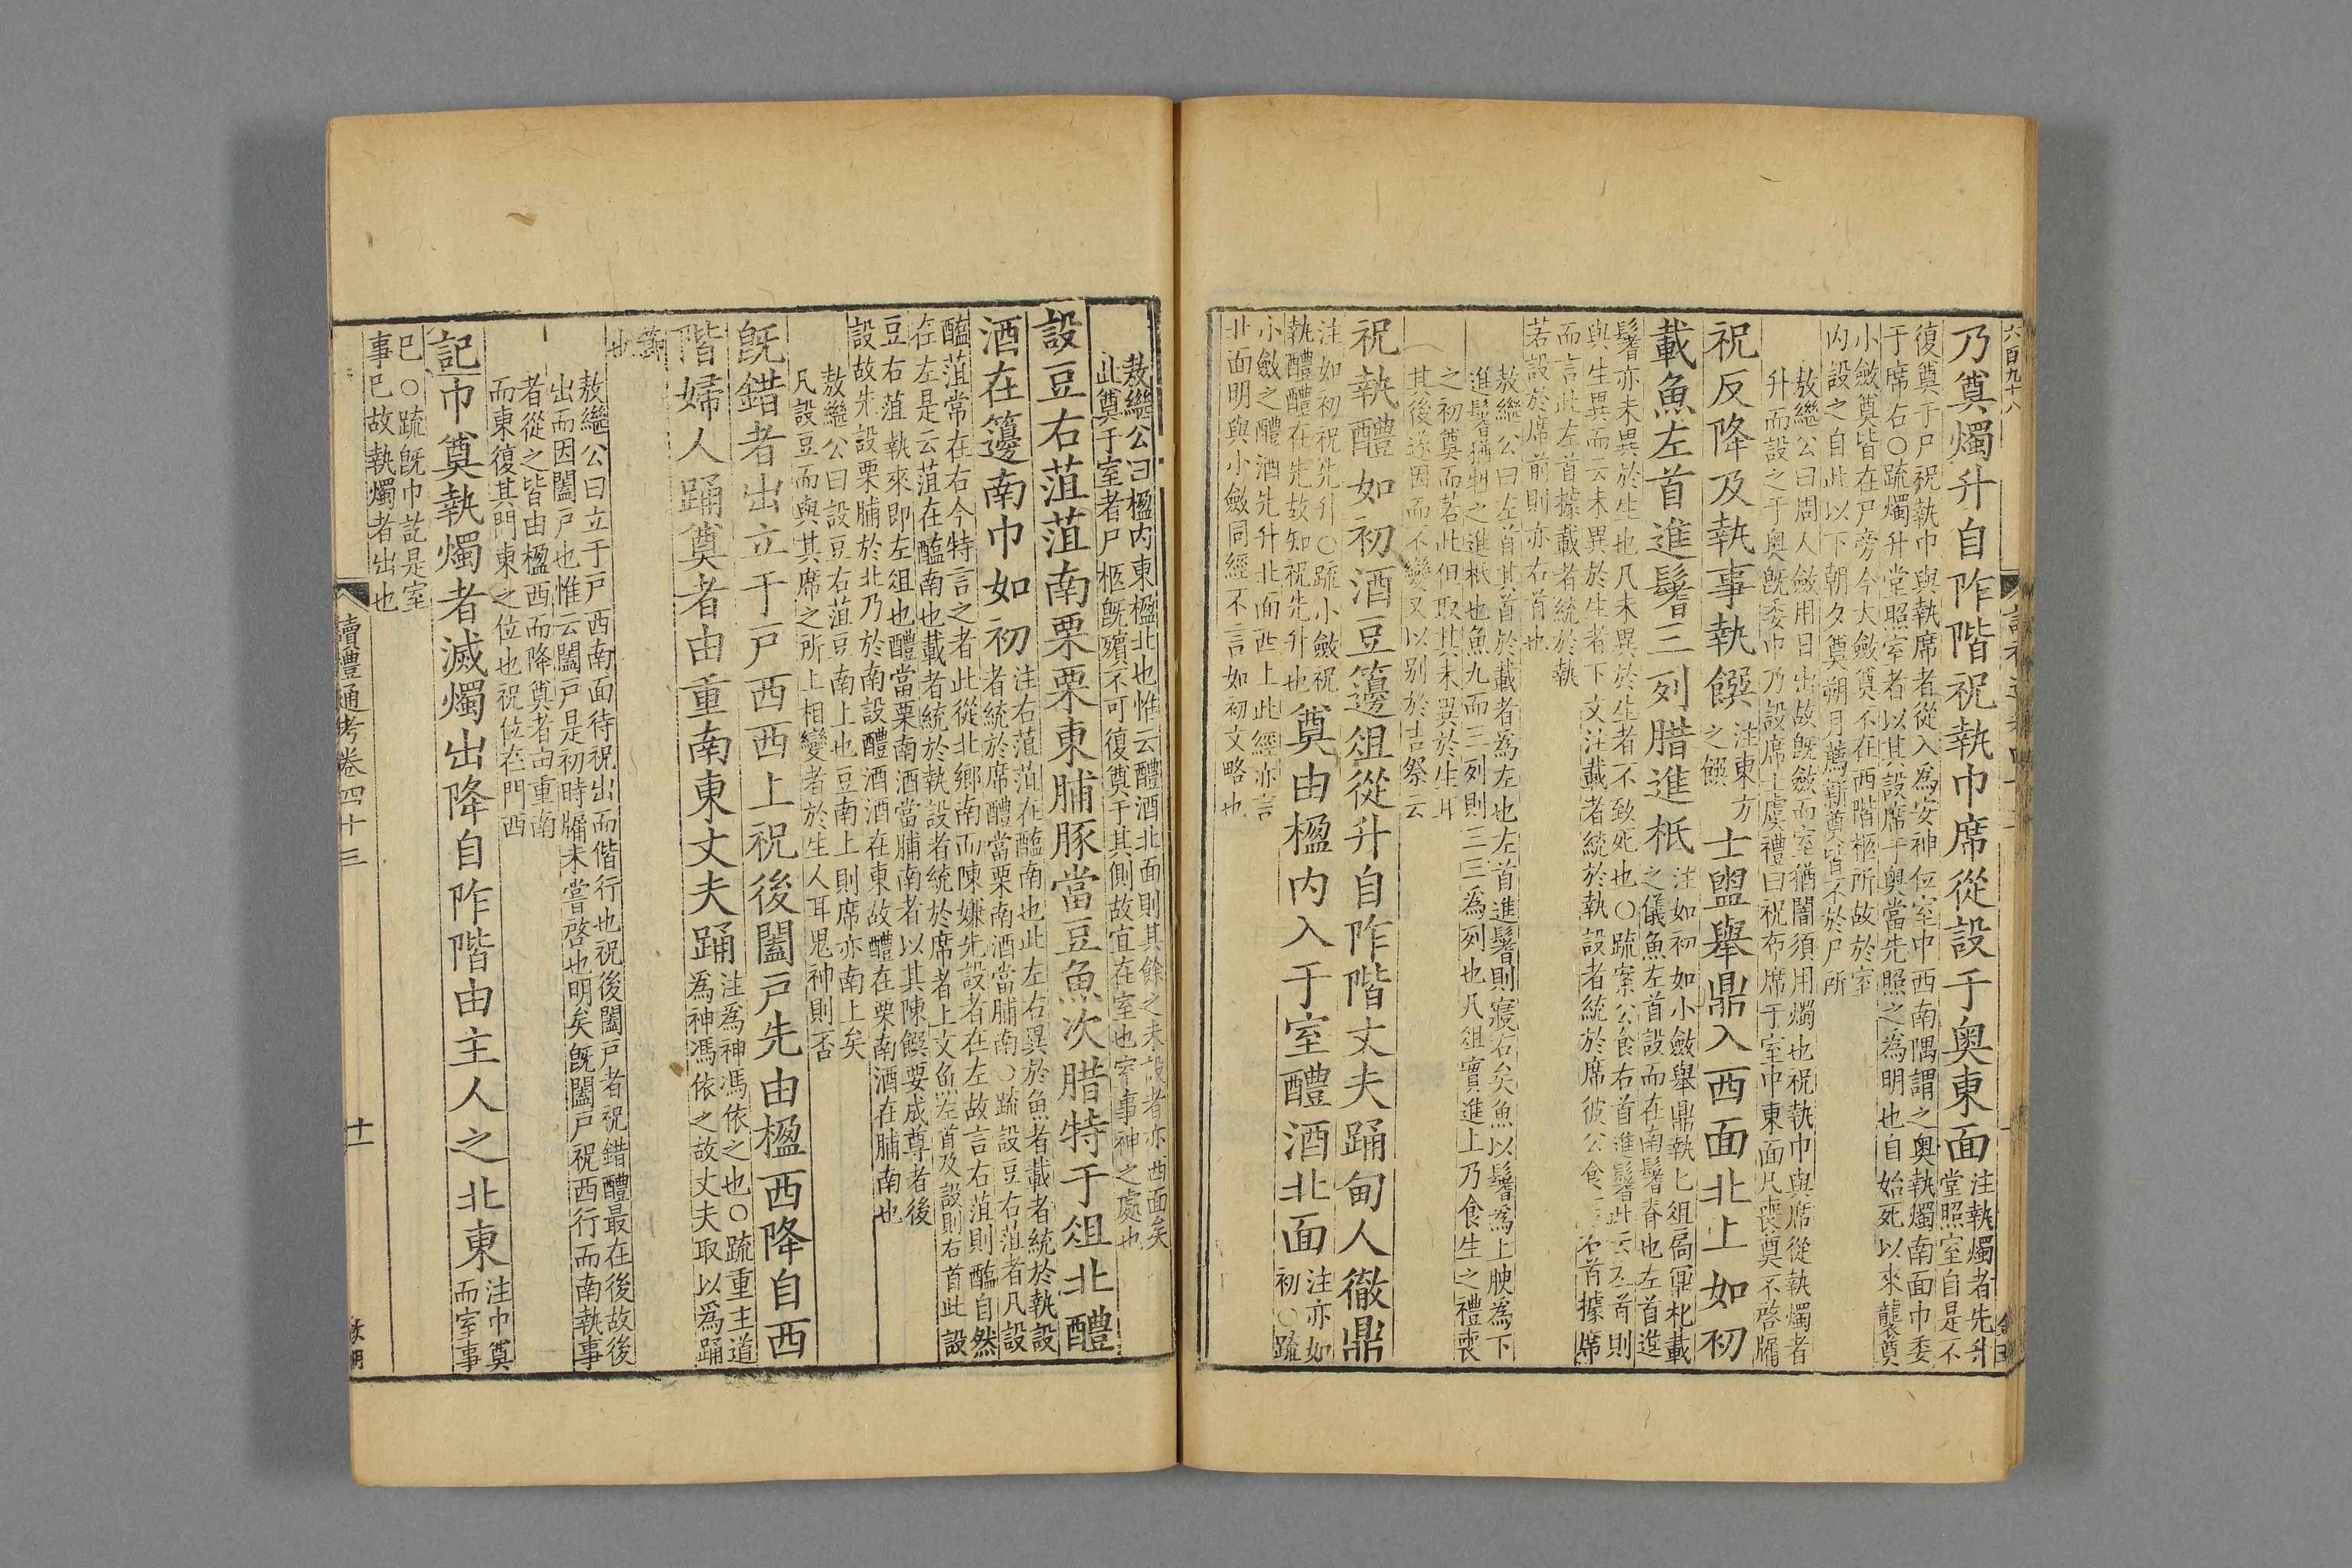 六百九十八
乃奠燭升自阼階祝執巾席從設于奧東面注執燭者先升
堂照室自是不
復奠于尸祝執巾與執席者從入為安神位室中西南隅謂之奧執燭南面巾委
于席右○疏燭升堂照室者以其設席于奧當先照之為明也自始死以來襲奠
小斂奠皆在尸旁今大斂奠不在西階柩所故於室
内設之自此以下朝夕奠朔月薦新奠皆不於尸所
敖繼公曰周人斂用日出故旣斂而室猶闇須用燭也祝執巾與席從執燭者
升而設之于奧旣委巾乃設席士虞禮曰祝布席于室中東面凡喪奠不啓牖
祝反降及執事執饌注東方
之饌
士盥舉鼎入西面北上如初
載魚左首進鬐三列腊進柢注如初如小斂舉鼎執匕俎扃鼏朼載
之儀魚左首設而在南鬐脊也左首進
鬐亦未異於生也凡未異於生者不致死也○疏案公食右首進鬐此云左首則
與生異而云未異於生者下文注載者統於執設者統於席彼公食 右首據席
而言此左首據載者統於執
若設於席前則亦右首也
敖繼公曰左首其首於載者為左也左首進鬐則寢右矣魚以鬐為上腴為下
進鬐猶牲之進柢也魚九而三列則三三為列也凡俎實進上乃食生之禮喪
之初奠而若此但取其未異於生耳
其後遂因而不變又以别於吉祭云
祝執醴如初酒豆籩俎從升自阼階丈夫踊甸人徹鼎
注如初祝先升○疏小斂祝
執醴醴在先故知祝先升也
奠由楹内入于室醴酒北面注亦如
初○疏
小斂之醴酒先升北面西上此經亦言
北面明與小斂同經不言如初文略也
敖繼公曰楹内東楹北也惟云醴酒北面則其餘之未設者亦西面矣
此奠于室者尸柩旣殯不可復奠于其側故宜在室也室事神之處也
設豆右菹菹南栗栗東脯豚當豆魚次腊特于俎北醴
酒在籩南巾如初注右菹菹在醢南也此左右異於魚者載者統於執設
者統於席醴當栗南酒當脯南○疏設豆右菹者凡設
醢菹常在右今特言之者此從北鄉南而陳嫌先設者在左故言右菹則醢自然
在左是云菹在醢南也載者統於執設者統於席者上文魚左首及設則右首此設
豆右菹執來即左俎也醴當栗南酒當脯南者以其陳饌要成尊者後
設故先設栗脯於北乃於南設醴酒酒在東故醴在栗南酒在脯南也
敖繼公曰設豆右菹豆南上也豆南上則席亦南上矣
凡設豆而與其席之所上相變者於生人耳鬼神則否
旣錯者出立于戸西西上祝後闔戸先由楹西降自西
階婦人踊奠者由重南東丈夫踊注為神馮依之也○疏重主道
為神馮依之故丈夫取以為踊
節
也
敖繼公曰立于戸西南面待祝出而偕行也祝後闔戸者祝錯醴最在後故後
出而因闔戸也惟云闔戸是初時牖未嘗啓也明矣旣闔戸祝西行而南執事
者從之皆由楹西而降奠者由重南
而東復其門東之位也祝位在門西
記巾奠執燭者滅燭出降自阼階由主人之北東注巾奠
而室事
已○疏旣巾訖是室
事已故執燭者出也
讀禮通考卷四十三
十一